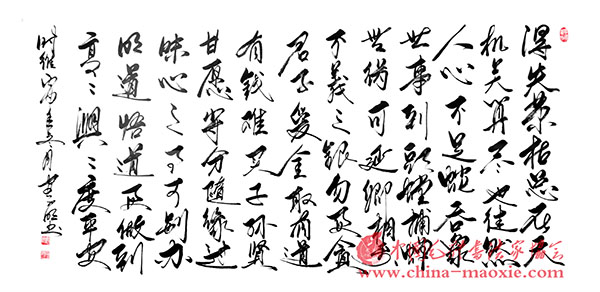 得失荣枯总在天
机关算尽也徒然
人心不足蛇吞象
世事到头螳捕蝉
可延卿相
不义之银勿贪
君子爱金取有道
有钱难买子孙贤
甘愿守分随缘过
昧心之事可别办
明道悟道再做到
高々兴々度平安
www.china-maoxie.com